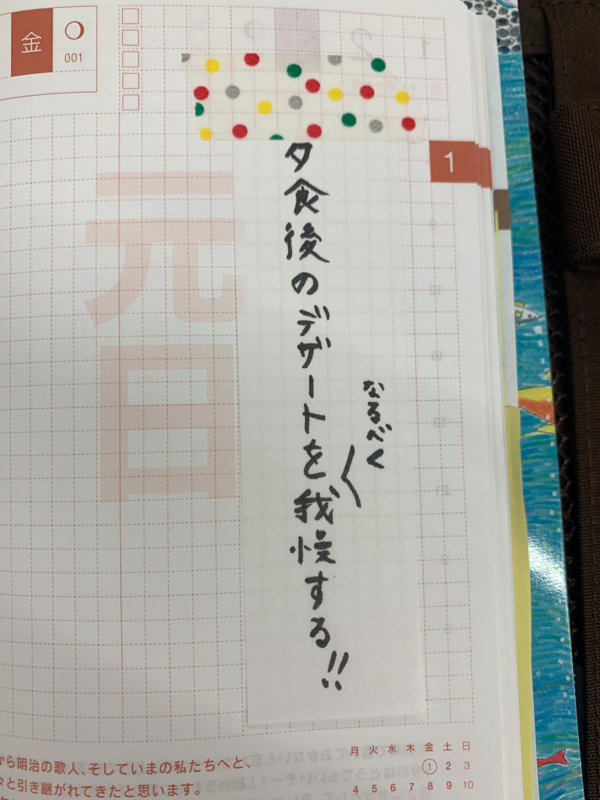 金
001
1
元日
夕食後のデザートを我慢する!!
なるべく
から明治の歌人、そしていまの私たちへと、
々と引き継がれてきたと思います。
月 火 水 木 金 土 日
1 2 3
4 5 6 7 8 9 10